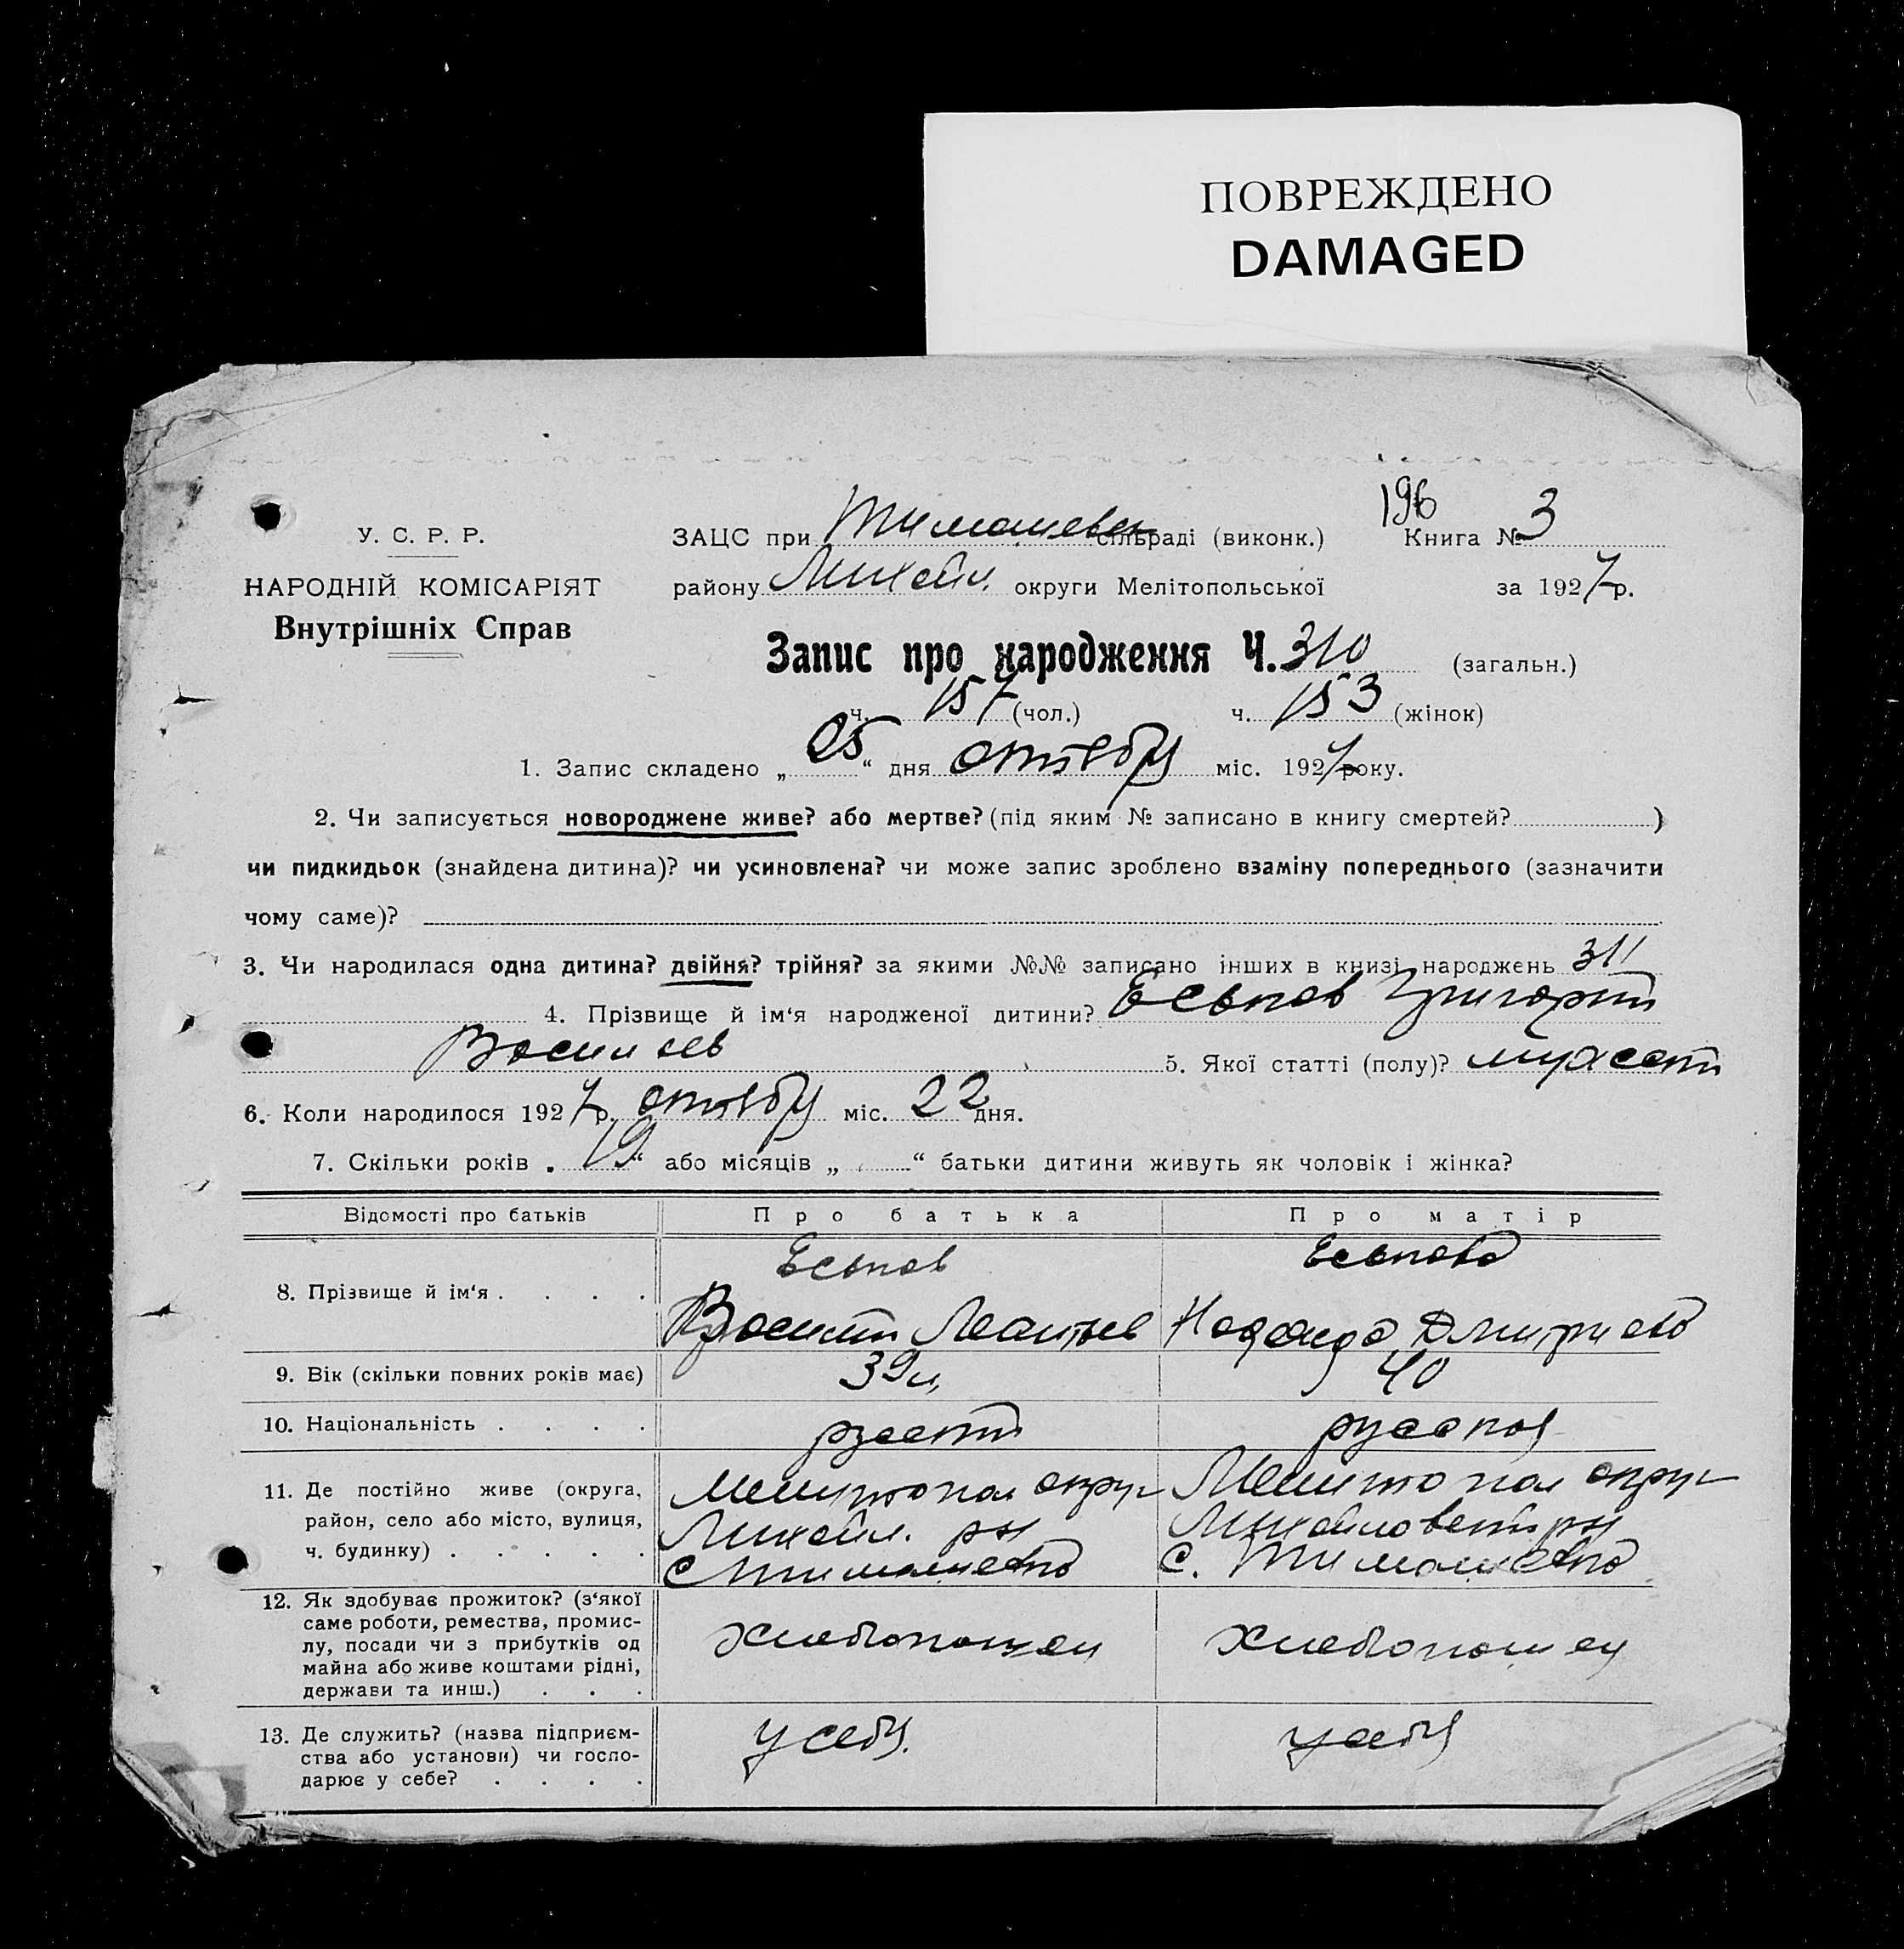 ПОВРЕЖДЕНО
DAMAGED
196
У. С. Р. Р.
НАРОДНІЙ КОМІСАРІЯТ
Внутрішніх Справ
ЗАЦС при Тимашевск сільраді (виконк.) Книга № 3
району Михайл. округи Мелітопольської за 1927 р.
Запис про народження Ч. 310 (загальн.)
ч. 157 (чол.) ч. 153 (жінок)
1. Запис складено „ 25 “ дня октября міс. 1927 року.
2. Чи записується новороджене живе? або мертве? (під яким № записано в книгу смертей? )
чи пидкидьок (знайдена дитина)? чи усиновлена? чи може запис зроблено взаміну попереднього (зазначити
чому саме)?
3. Чи народилася одна дитина? двійня? трійня? за якими №№ записано інших в книзі народжень 311
4. Прізвище й ім‘я народженої дитини? Еськов Григорий
Васильев 5. Якої статті (полу)? мужской
6. Коли народилося 1927 р. октября міс. 22 дня.
7. Скільки років „ 19 “ або місяців „ “ батьки дитини живуть як чоловік і жінка?
Відомості про батьків Про батька Про матір
8. Прізвище й ім‘я . . . . Еськов Еськова
Василий Леонтьев Надежда Дмитриева
9. Вік (скільки повних років має) 39 л. 40
10. Національність . . . . русский русская
11. Де постійно живе (округа, Мелитопол округ Мелитопол округ
район, село або місто, вулиця, Михайл. рн Михайловский рн
ч. будинку) . . . . . с Тимашевка с. Тимашевка
12. Як здобуває прожиток? (з‘якої
саме роботи, ремества, промис-
лу, посади чи з прибутків од хлебопашец хлебопашец
майна або живе коштами рідні,
держави та инш.) . . .
13. Де служить? (назва підприєм- у себя. у себя
ства або установи) чи госпо-
дарює у себе? . . . .